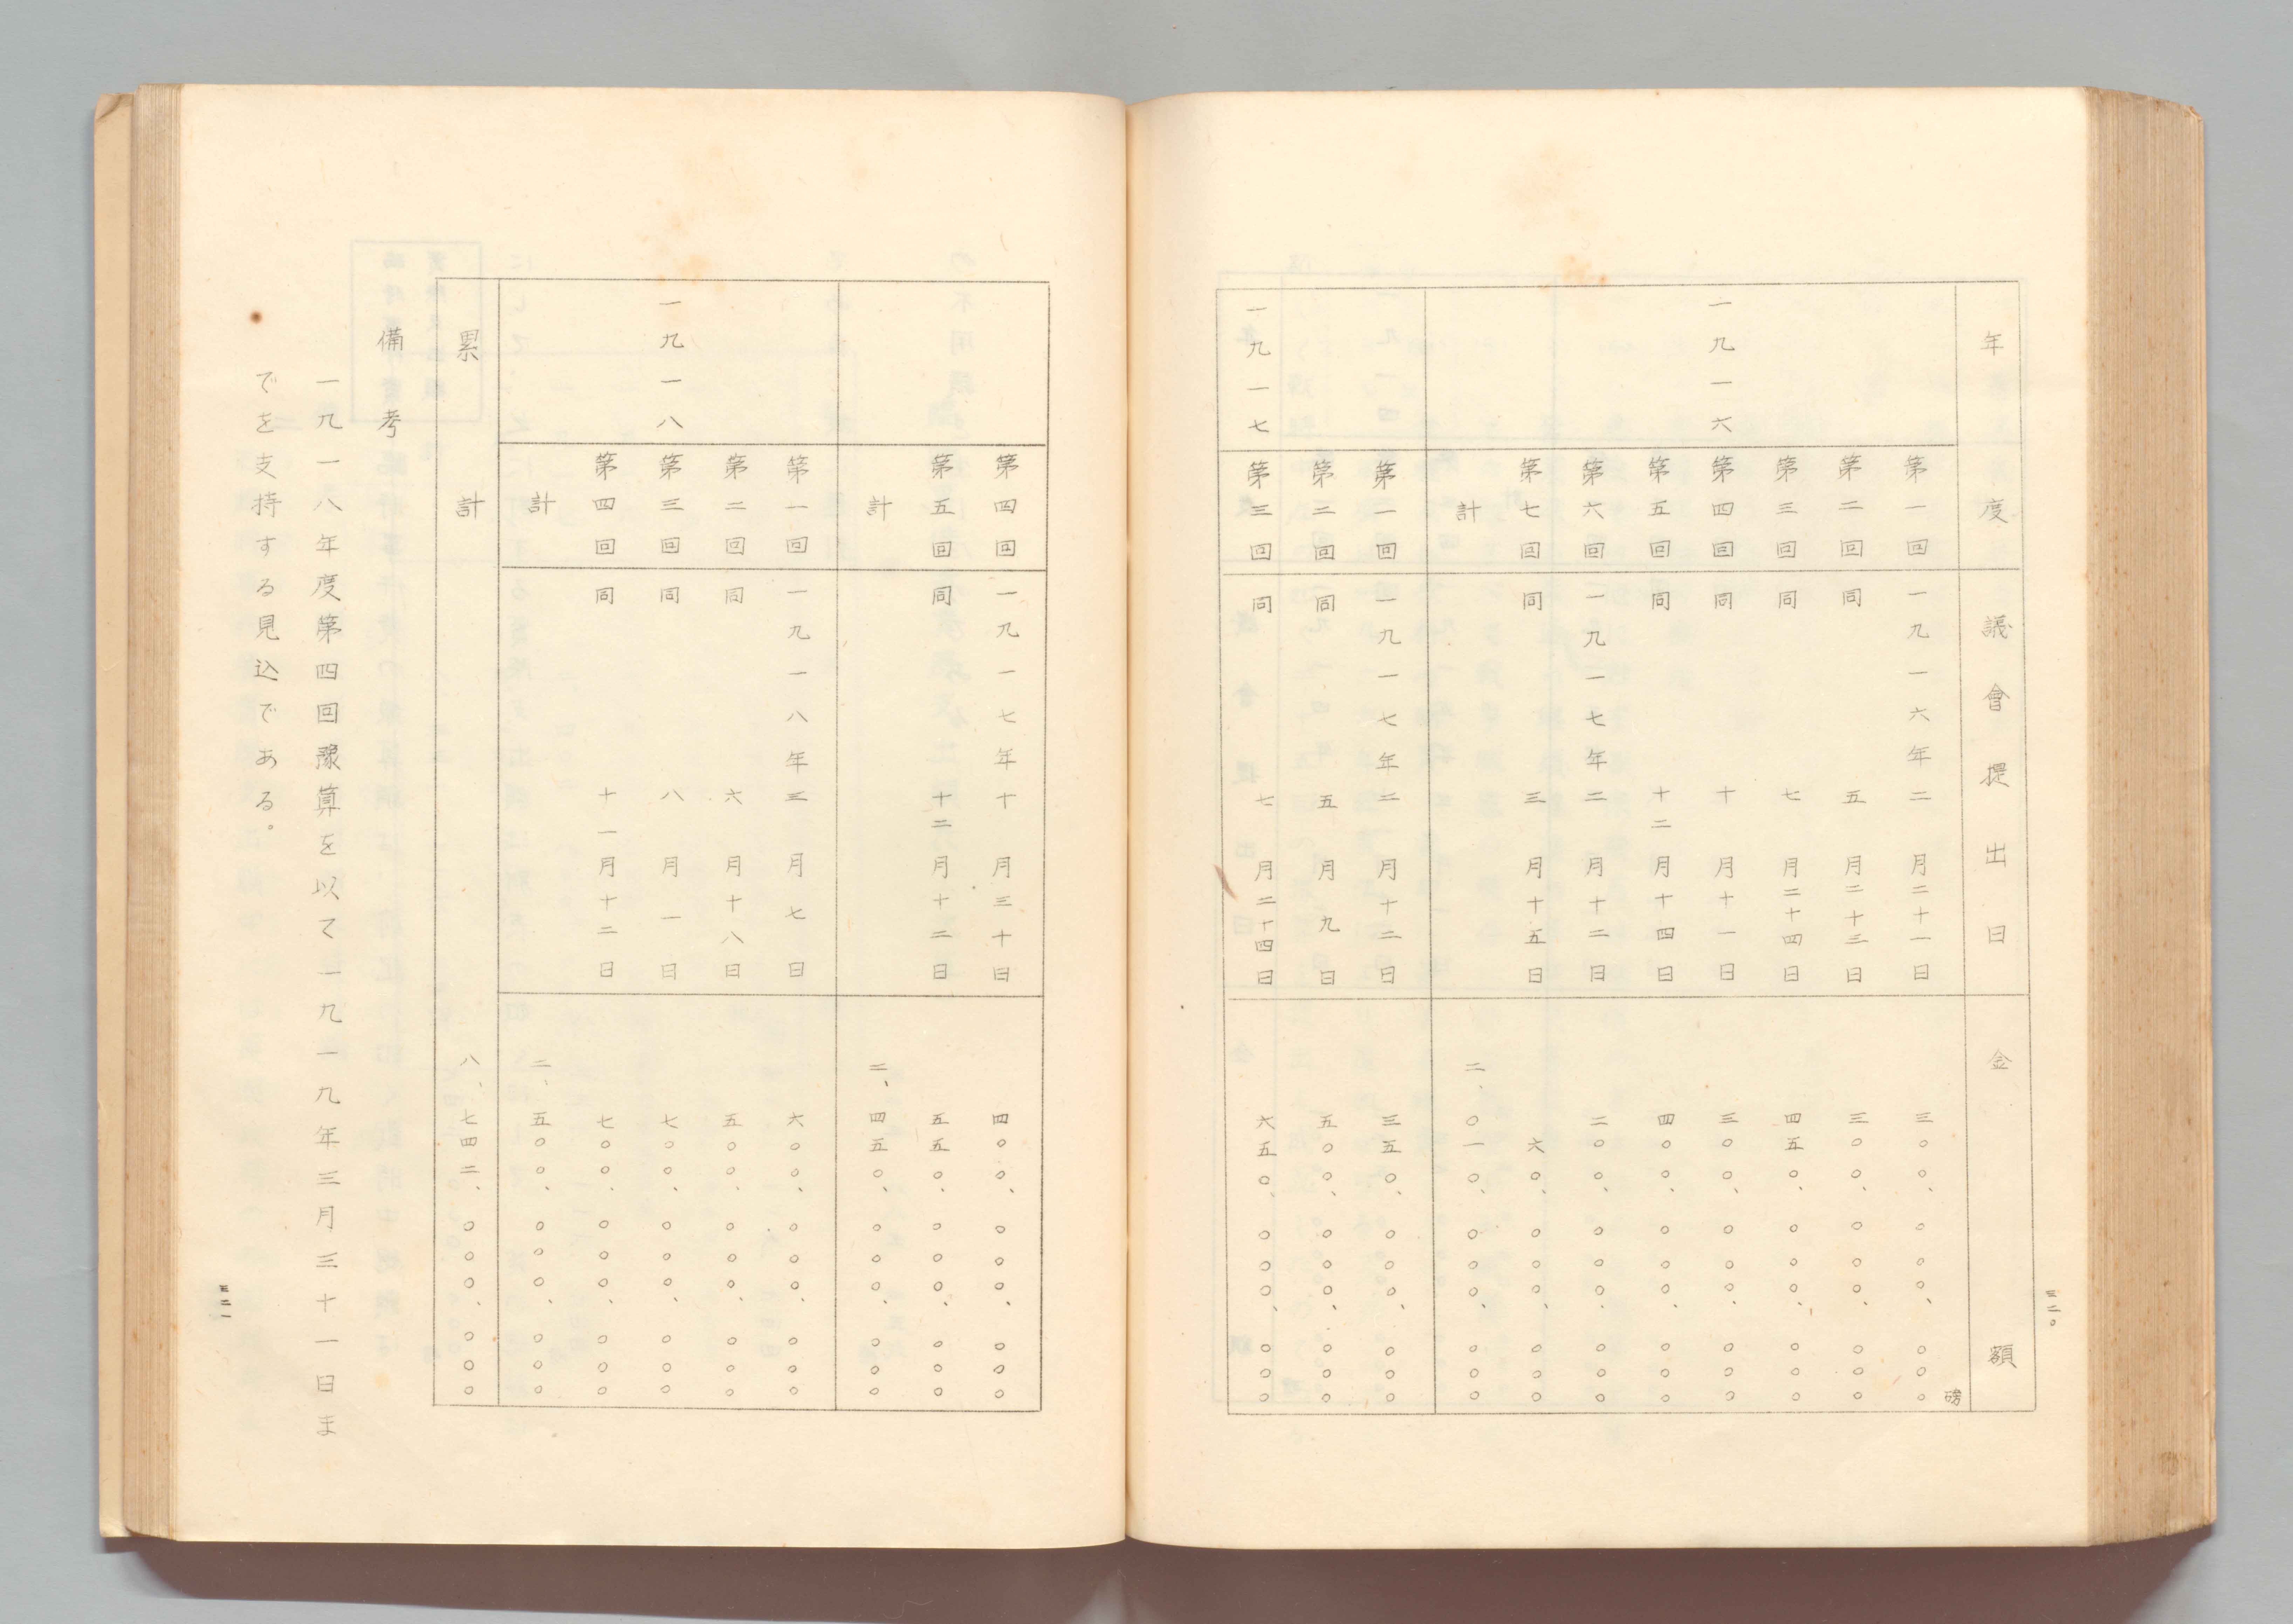 三二〇
年度 議會提出日 金額
第一回 一九一六年二月二十一日 三〇〇、〇〇〇、〇〇〇磅
第二回 同 五月二十三日 三〇〇、〇〇〇、〇〇〇
第三回 同 七月二十四日 四五〇、〇〇〇、〇〇〇
一九一六 第四回 同 十月十一日 三〇〇、〇〇〇、〇〇〇
第五回 同 十二月十四日 四〇〇、〇〇〇、〇〇〇
第六回 一九一七年二月十二日 二〇〇、〇〇〇、〇〇〇
第七回 同 三月十五日 六〇、〇〇〇、〇〇〇
計 二、〇一〇、〇〇〇、〇〇〇
第一回 一九一七年二月十二日 三五〇、〇〇〇、〇〇〇
第二回 同 五月九日 五〇〇、〇〇〇、〇〇〇
一九一七 第三回 同 七月二十四日 六五〇、〇〇〇、〇〇〇
第四回 一九一七年十月三十日 四〇〇、〇〇〇、〇〇〇
第五回 同 十二月十二日 五五〇、〇〇〇、〇〇〇
計 二、四五〇、〇〇〇、〇〇〇
第一回 一九一八年三月七日 六〇〇、〇〇〇、〇〇〇
第二回 同 六月十八日 五〇〇、〇〇〇、〇〇〇
一九一八 第三回 同 八月一日 七〇〇、〇〇〇、〇〇〇
第四回 同 十一月十二日 七〇〇、〇〇〇、〇〇〇
計 二、五〇〇、〇〇〇、〇〇〇
累計 八、七四二、〇〇〇、〇〇〇
備考
一九一八年度第四回豫算を以て一九一九年三月三十一日ま
でを支持する見込である。
三二一